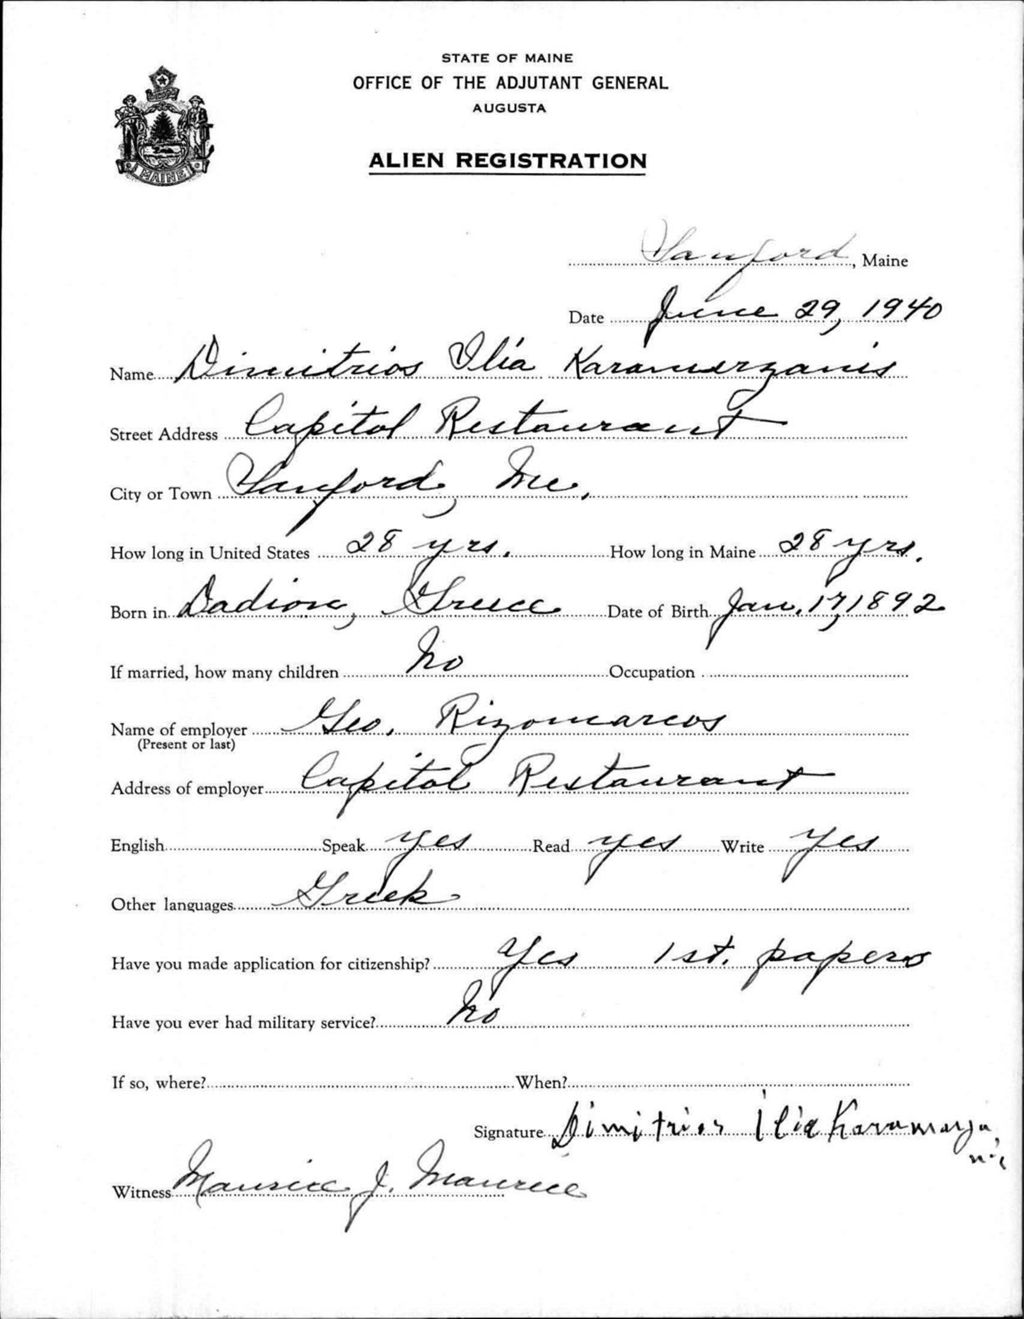 STATE OF MAINE
OFFICE OF THE ADJUTANT GENERAL
AUGUSTA
ALIEN REGISTRATION
MAINE
Sanford, Maine
Date June 29, 1940
Name Dimitrios Ilia Karamerzanis
Street Address Capitol Restaurant
City or Town Sanford, Me.
How long in United States 28 yrs. How long in Maine 28 yrs.
Born in Dadion, Greece Date of Birth Jan. 17, 1892
If married, how many children No Occupation
Name of employer Geo. Rizomarcos
(Present or last)
Address of employer Capitol Restaurant
English Speak yes Read yes Write Yes
Other languages Greek
Have you made application for citizenship? Yes 1st. papers
Have you ever had military service? No
If so, where? When?
Signature Dimitrios Ilia
Witness Maurice J. Maurice